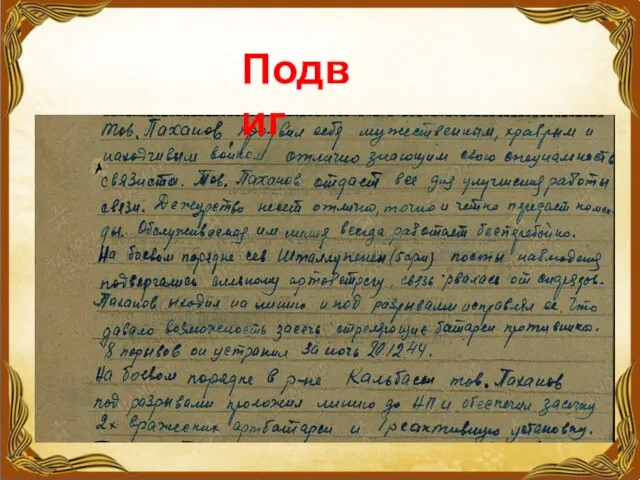 Подв
иг
Тов. Паханов проявил себя мужественным, храбрым и
находчивым воином отлично знающим свою специальность
связиста. Тов. Паханов отдает все для улучшения работы
связи. Дежурство несет отлично, точно и четко передает коман-
ды. Обслуживаемая им линия всегда работает бесперебойно.
На боевом порядке сев Шталлупенен (бари) посты наблюдения
подвергались сильному артобстрелу, связь рвалась от снарядов.
Паханов выходил на линию и под разрывами исправлял ее. Что
давало возможность засечь стреляющие батареи противника.
8 порывов он устранил за ночь 20.12.44.
На боевом порядке в р-не Кальбасен тов. Паханов
под разрывами проложил линию до НП и обеспечил засечку
2х вражеских артбатареи и 1 реактивную установку.